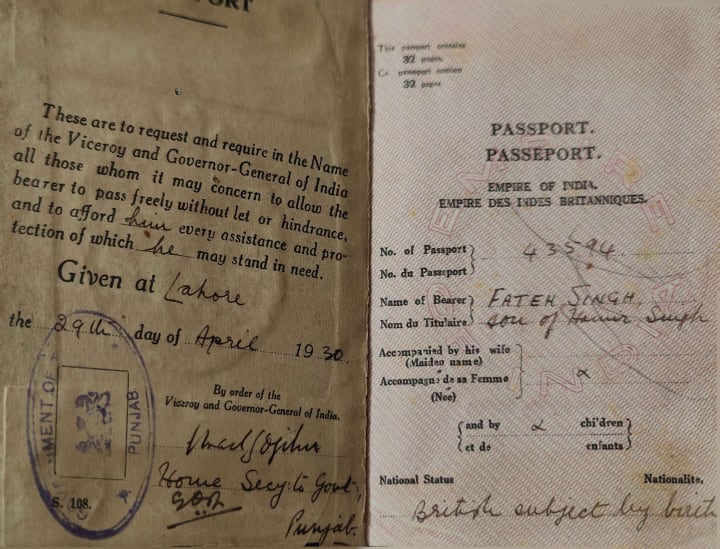 PORT
These are to request and require in the Name
of the Viceroy and Governor-General of India
all those whom it may concern to allow the
bearer to pass freely without let or hindrance,
and to afford him every assistance and pro-
tection of which he may stand in need.
Given at Lahore
the 29th day of April 1930.
By order of the
Viceroy and Governor-General of India.
Home Secy: to Govt,
Punjab.
MENT OF
PUNJAB
S. 108.
This passport contains
32 pages.
Ce passeport contient
32 pages
PASSPORT.
PASSEPORT.
EMPIRE OF INDIA.
EMPIRE DES INDES BRITANNIQUES.
No. of Passport } 43594.
No. du Passeport
Name of Bearer } FATEH SINGH,
Nom du Titulaire } son of Singh
Accompanied by his wife
(Maiden name)
Accompagné de sa Femme
(Nee)
{ and by children }
{ et de enfants }
National Status Nationalite.
British subject by birth